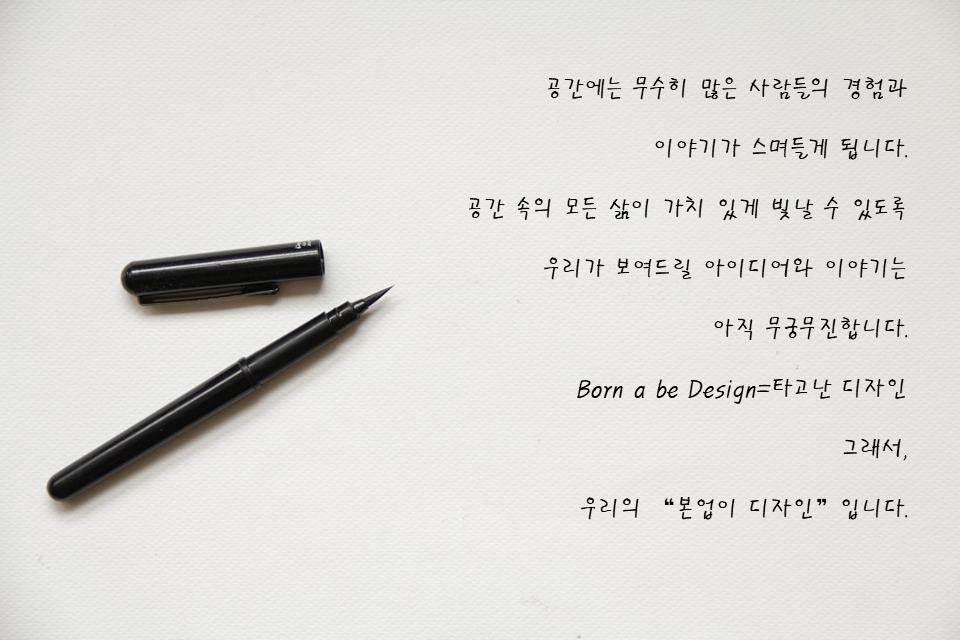 공간에는 무수히 많은 사람들의 경험과
이야기가 스며들게 됩니다.
공간 속의 모든 삶이 가치 있게 빛날 수 있도록
우리가 보여드릴 아이디어와 이야기는
아직 무궁무진합니다.
Born a be Design=타고난 디자인
그래서,
우리의 “본업이 디자인” 입니다.